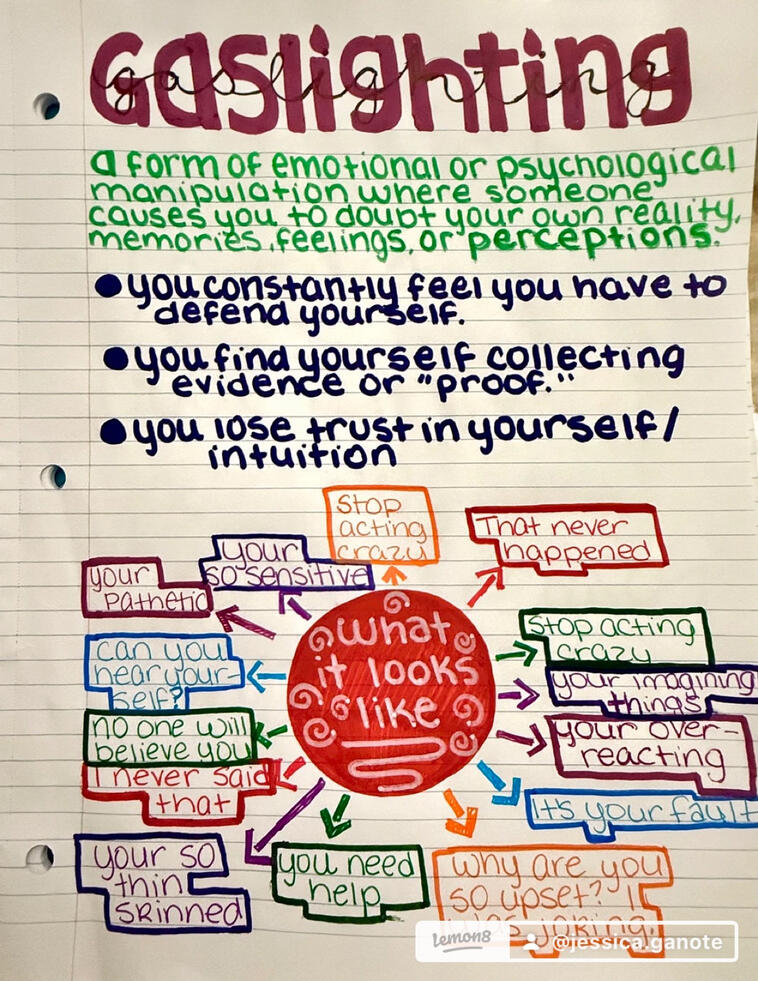 Gaslighting
gaslighting
a form of emotional or psychological
manipulation where someone
causes you to doubt your own reality,
memories, feelings, or perceptions.
you constantly feel you have to
defend yourself.
you find yourself collecting
evidence or "proof."
you lose trust in yourself/
intuition
Stop
acting
crazy
That never
happened
your
so sensitive
your
pathetic
what
it looks
like
Stop acting
crazy
can you
hear your-
self?
your imagining
things
no one will
believe you
your over-
reacting
I never said
that
it's your fault
your so
thin
skinned
you need
help
why are you
so upset? I
was joking.
lemon8
@jessica.ganote